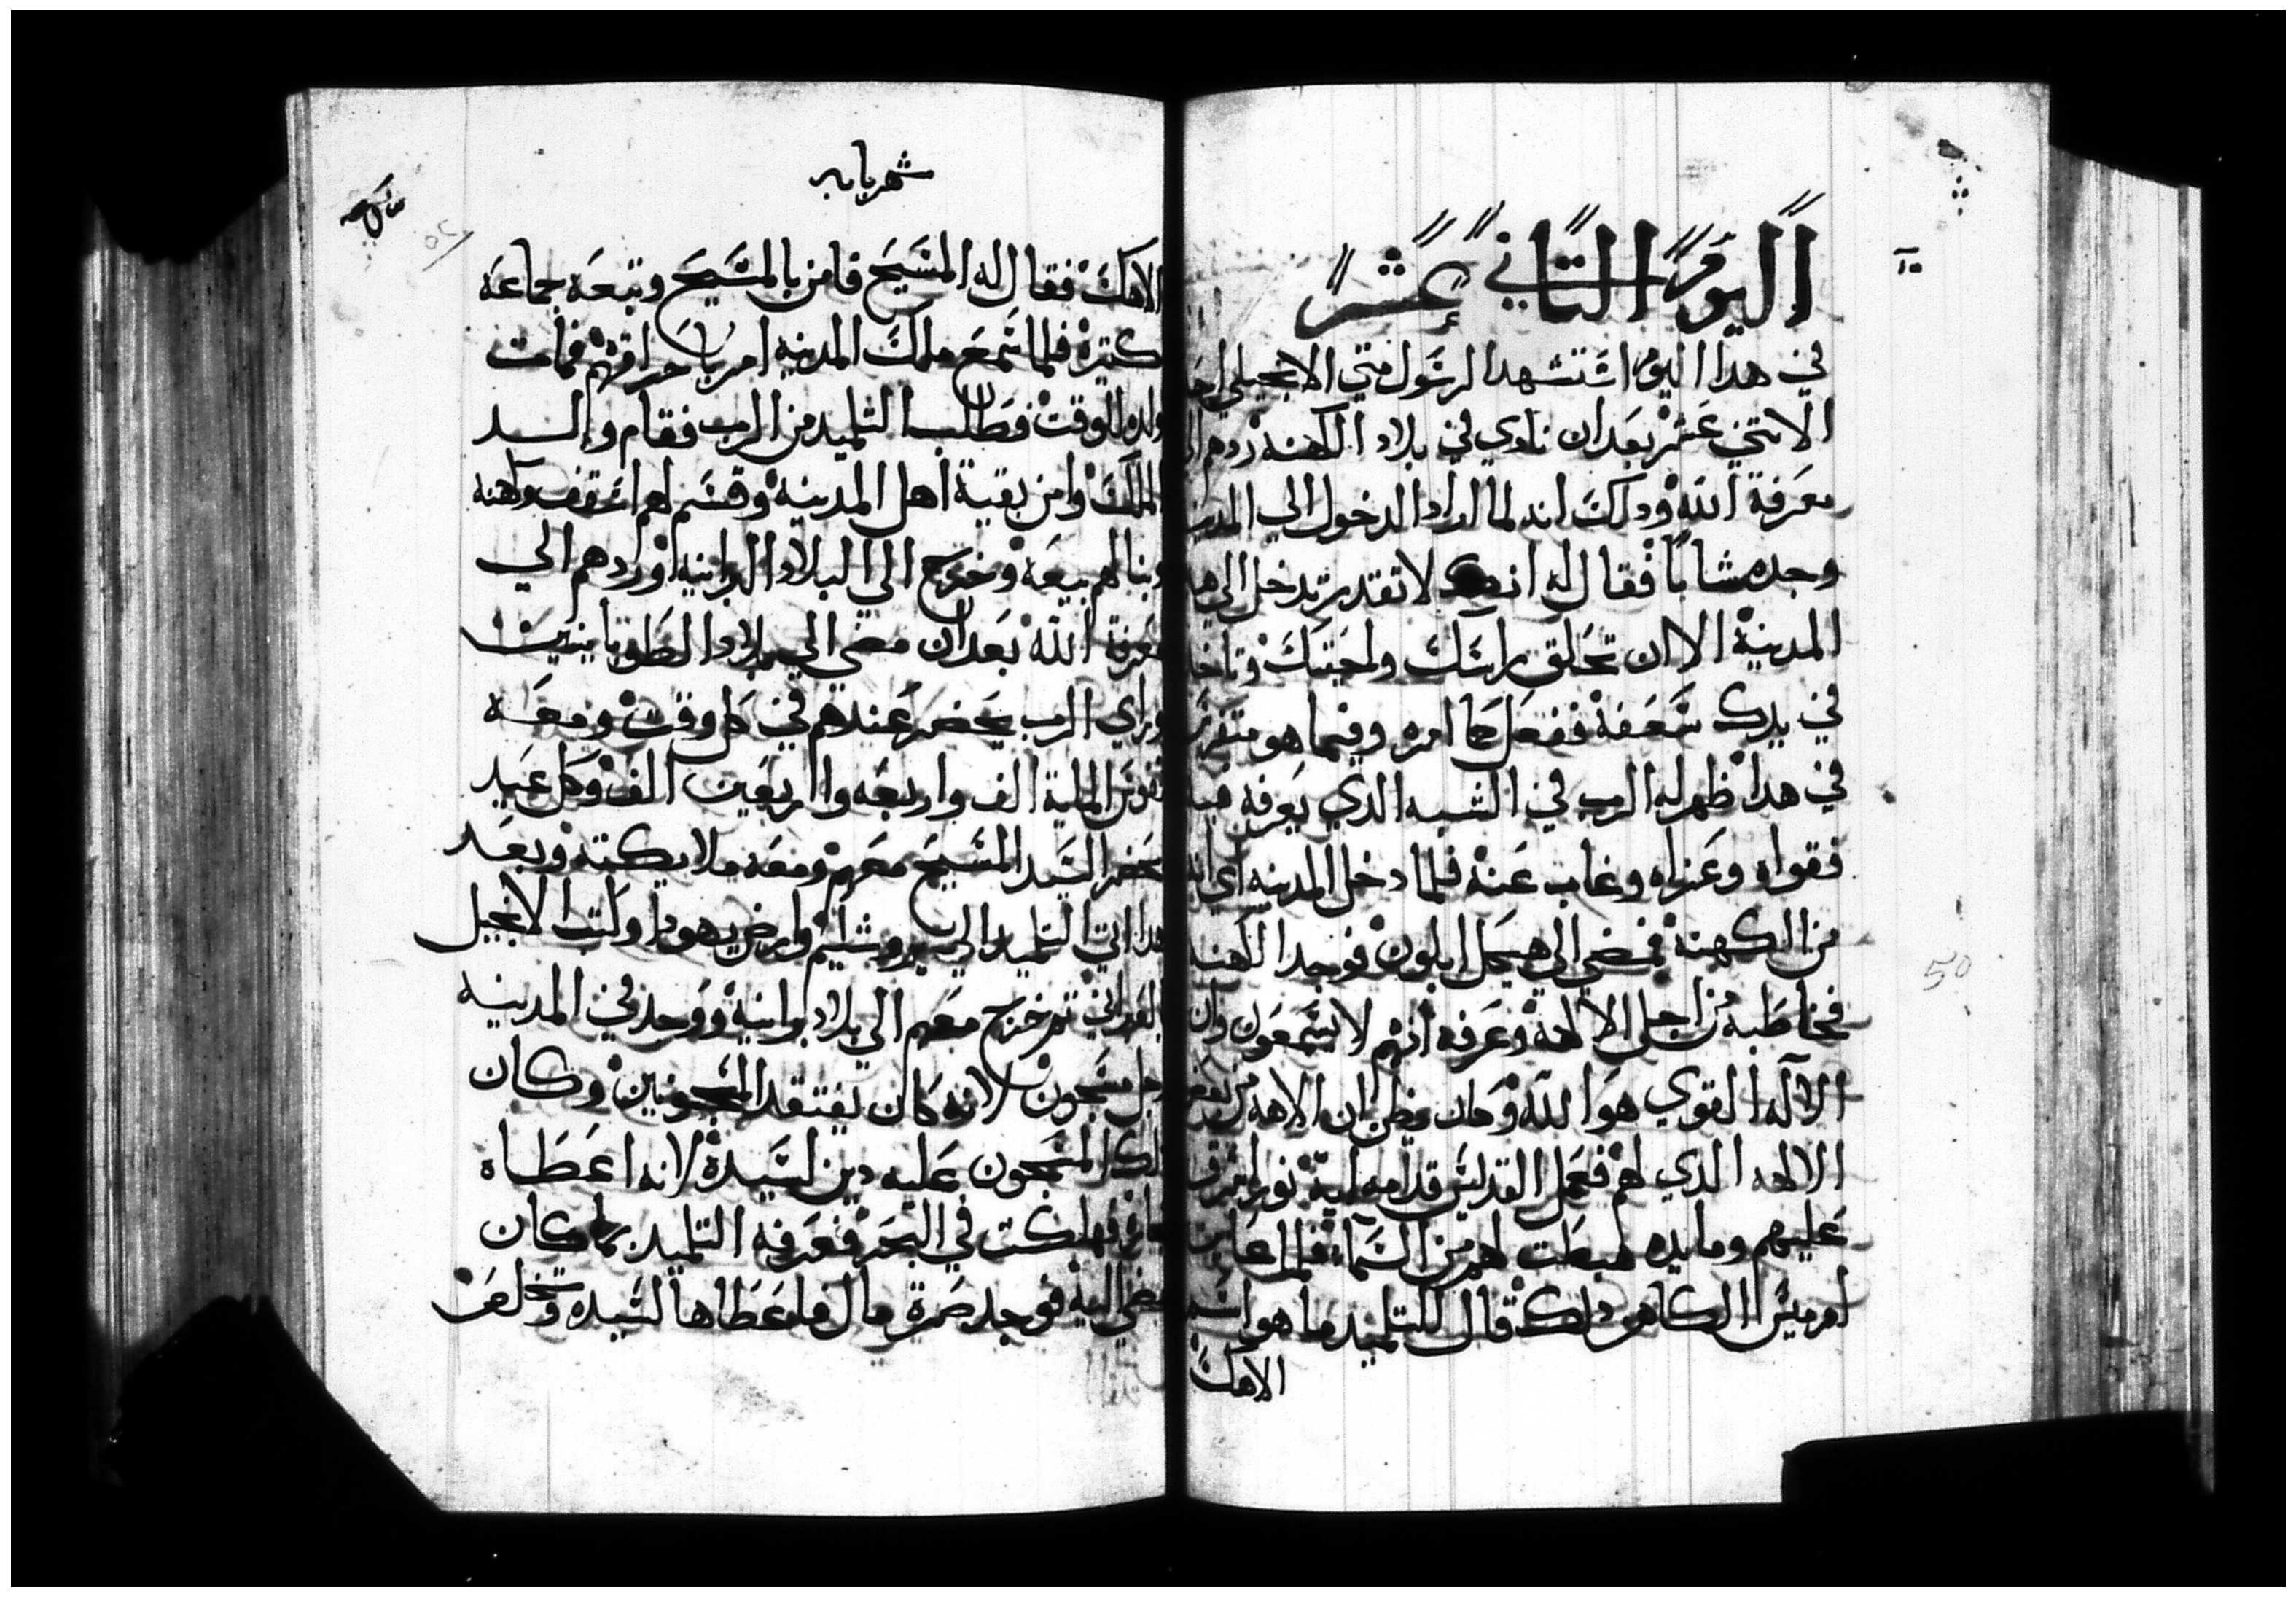 اليوم التاني عشر
في هدا اليوم استشهد الرسول متي الانجيلي احد
الاتني عشر بعد ان نادي في بلاد الكهنه ردهم الي
معرفة الله ودلك انه لما اراد الدخول الي المدينه
وجده شابا فقال له انك لا تقدر تدخل الي هده
المدينة الا ان تحلق راسك ولحيتك وتاخد
في يدك سعفة ففعل كما امره وفيما هو متفكر
في هدا ظهر له الرب في الشبه الدي يعرفه
فقواه وعزاه وغاب عنه فلما دخل المدينه
من الكهنة فمضي الي هيكل ابلون فوجد الكهنه
فخاطبه من اجل الالهة وعرفه انهم لا يسمعون وان
الاله القوي هو الله وكان يظن ان الاهه
الالهه الدي لهم فعمل القديس قدامه اية نورا اشرق
عليهم ومايده هبطت لهم من السماء فلما عاين
ارميس الكاهن دلك قال للتلميد ما هو اسم
الاهك
50
شهر بابه
52
الاهك فقال له المسيح فامن بالمسيح وتبعه جماعه
كتيرة فلما سمع ملك المدينه امر باحراقهم فمات
ولده للوقت فطلب التلميد من الرب فقام والسيد
الملك وامن بقية اهل المدينة وقسم لهم اسقف وكهنه
وبنا لهم بيعة وخرج الي البلاد البرانية وردهم الي
معرفة الله بعد ان مضي الي بلاد الطوبانيين
وراي الرب يحضر عندهم في كل وقت ومعه
الماية الف واربعه واربعين الف وكل عيد
يحضر السيد المسيح معهم ومعه ملايكته وبعد
هدا اتي التلميد الي يروشليم وارض يهودا وكتب الانجيل
العبراني تم خرج معهم الي بلاد برانية ووجد في المدينه
رجل مسجون لانه كان يفتقد المسجونين وكان
لدلك المسجون عليه دين لسيدة لانه اعطاه
فهلكت في البحر فعرفه التلميد بما كان
مضي اليه فوجد صرة مال فاعطاها لسيده وتخلص